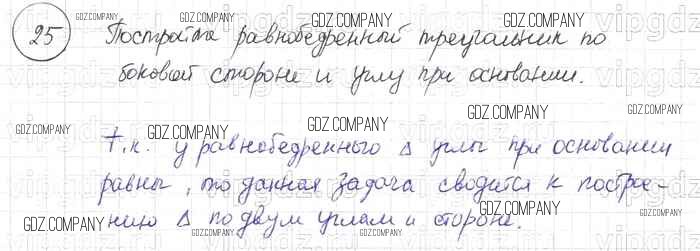 25 Постройте равнобедренный треугольник по
боковой стороне и углу при основании.
Т.к. у равнобедренного Δ углы при основании
равны, то данная задача сводится к построе-
нию Δ по двум углам и стороне.
GDZ.COMPANY